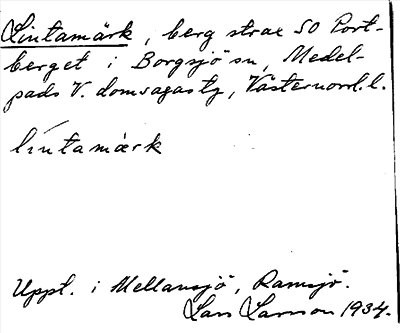 Lintamärk, berg strax SO Port-
berget i Borgsjö sn, Medel-
pads V. domsagas tg, Västernorrl. l.
líntamärk
Uppt. i Mellansjö, Ramsjö.
Lars Larsson 1934.